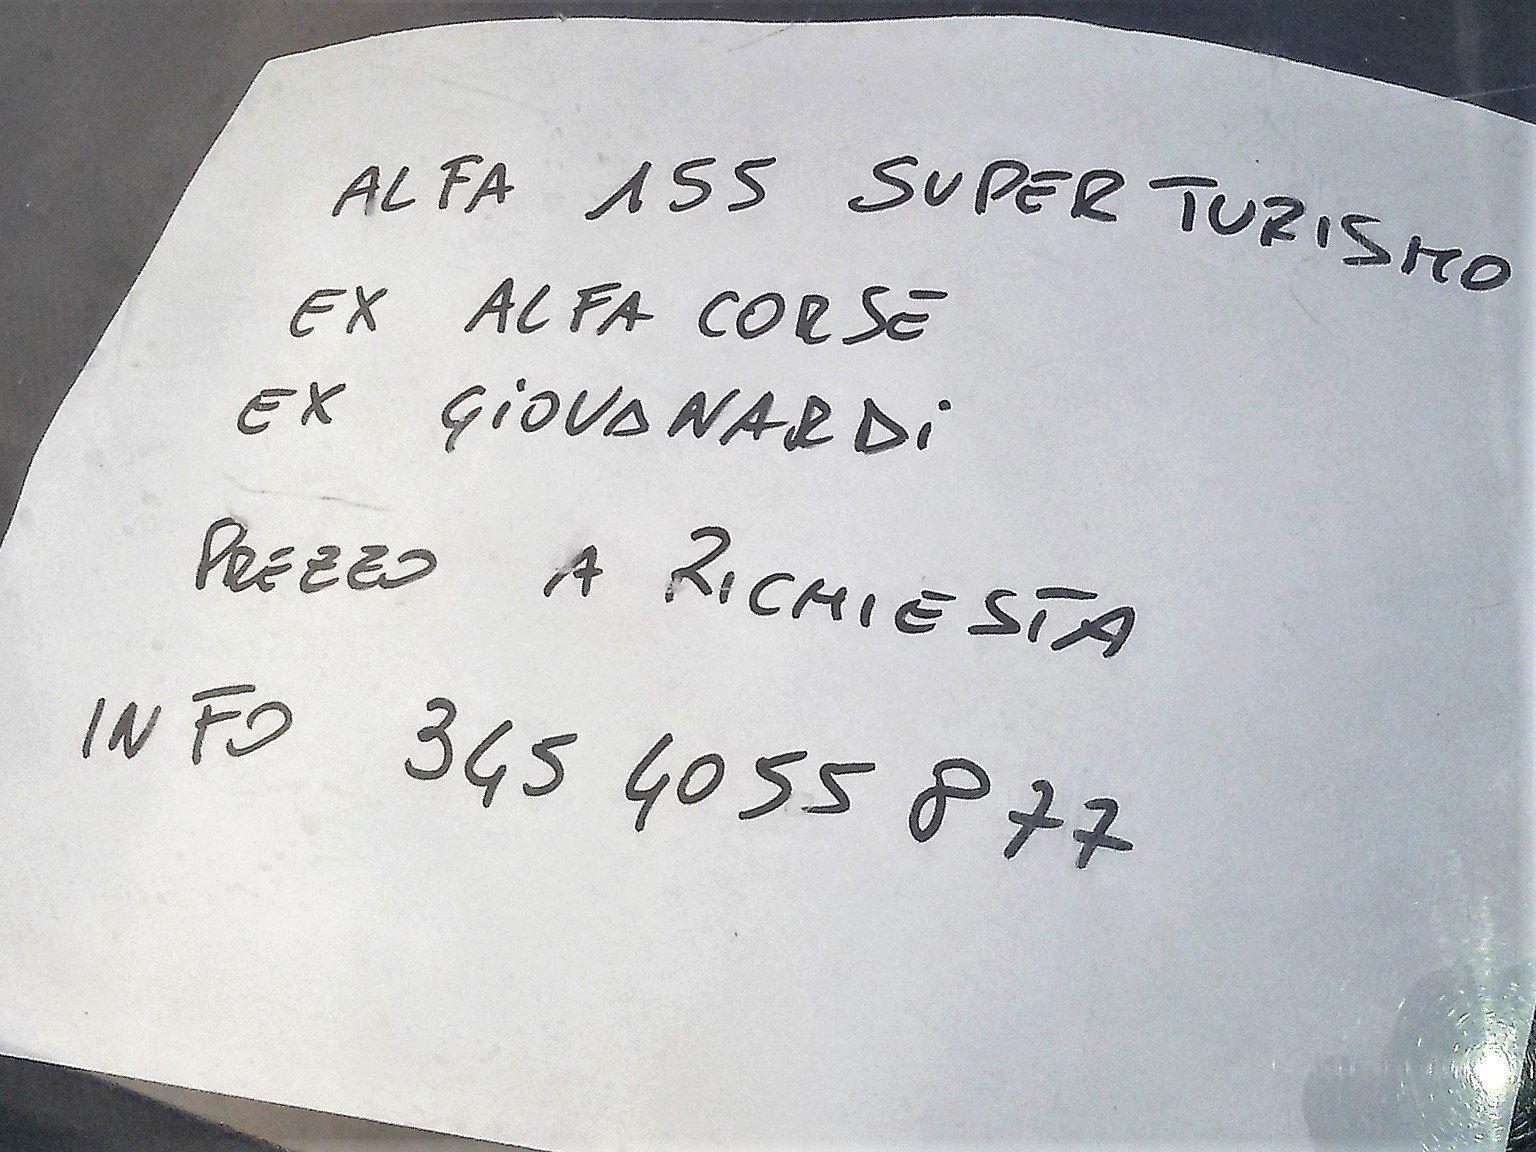 ALFA 155 SUPERTURISMO
EX ALFA CORSE
EX GIOVANARDI
PREZZO A RICHIESTA
INFO 345 4055 877